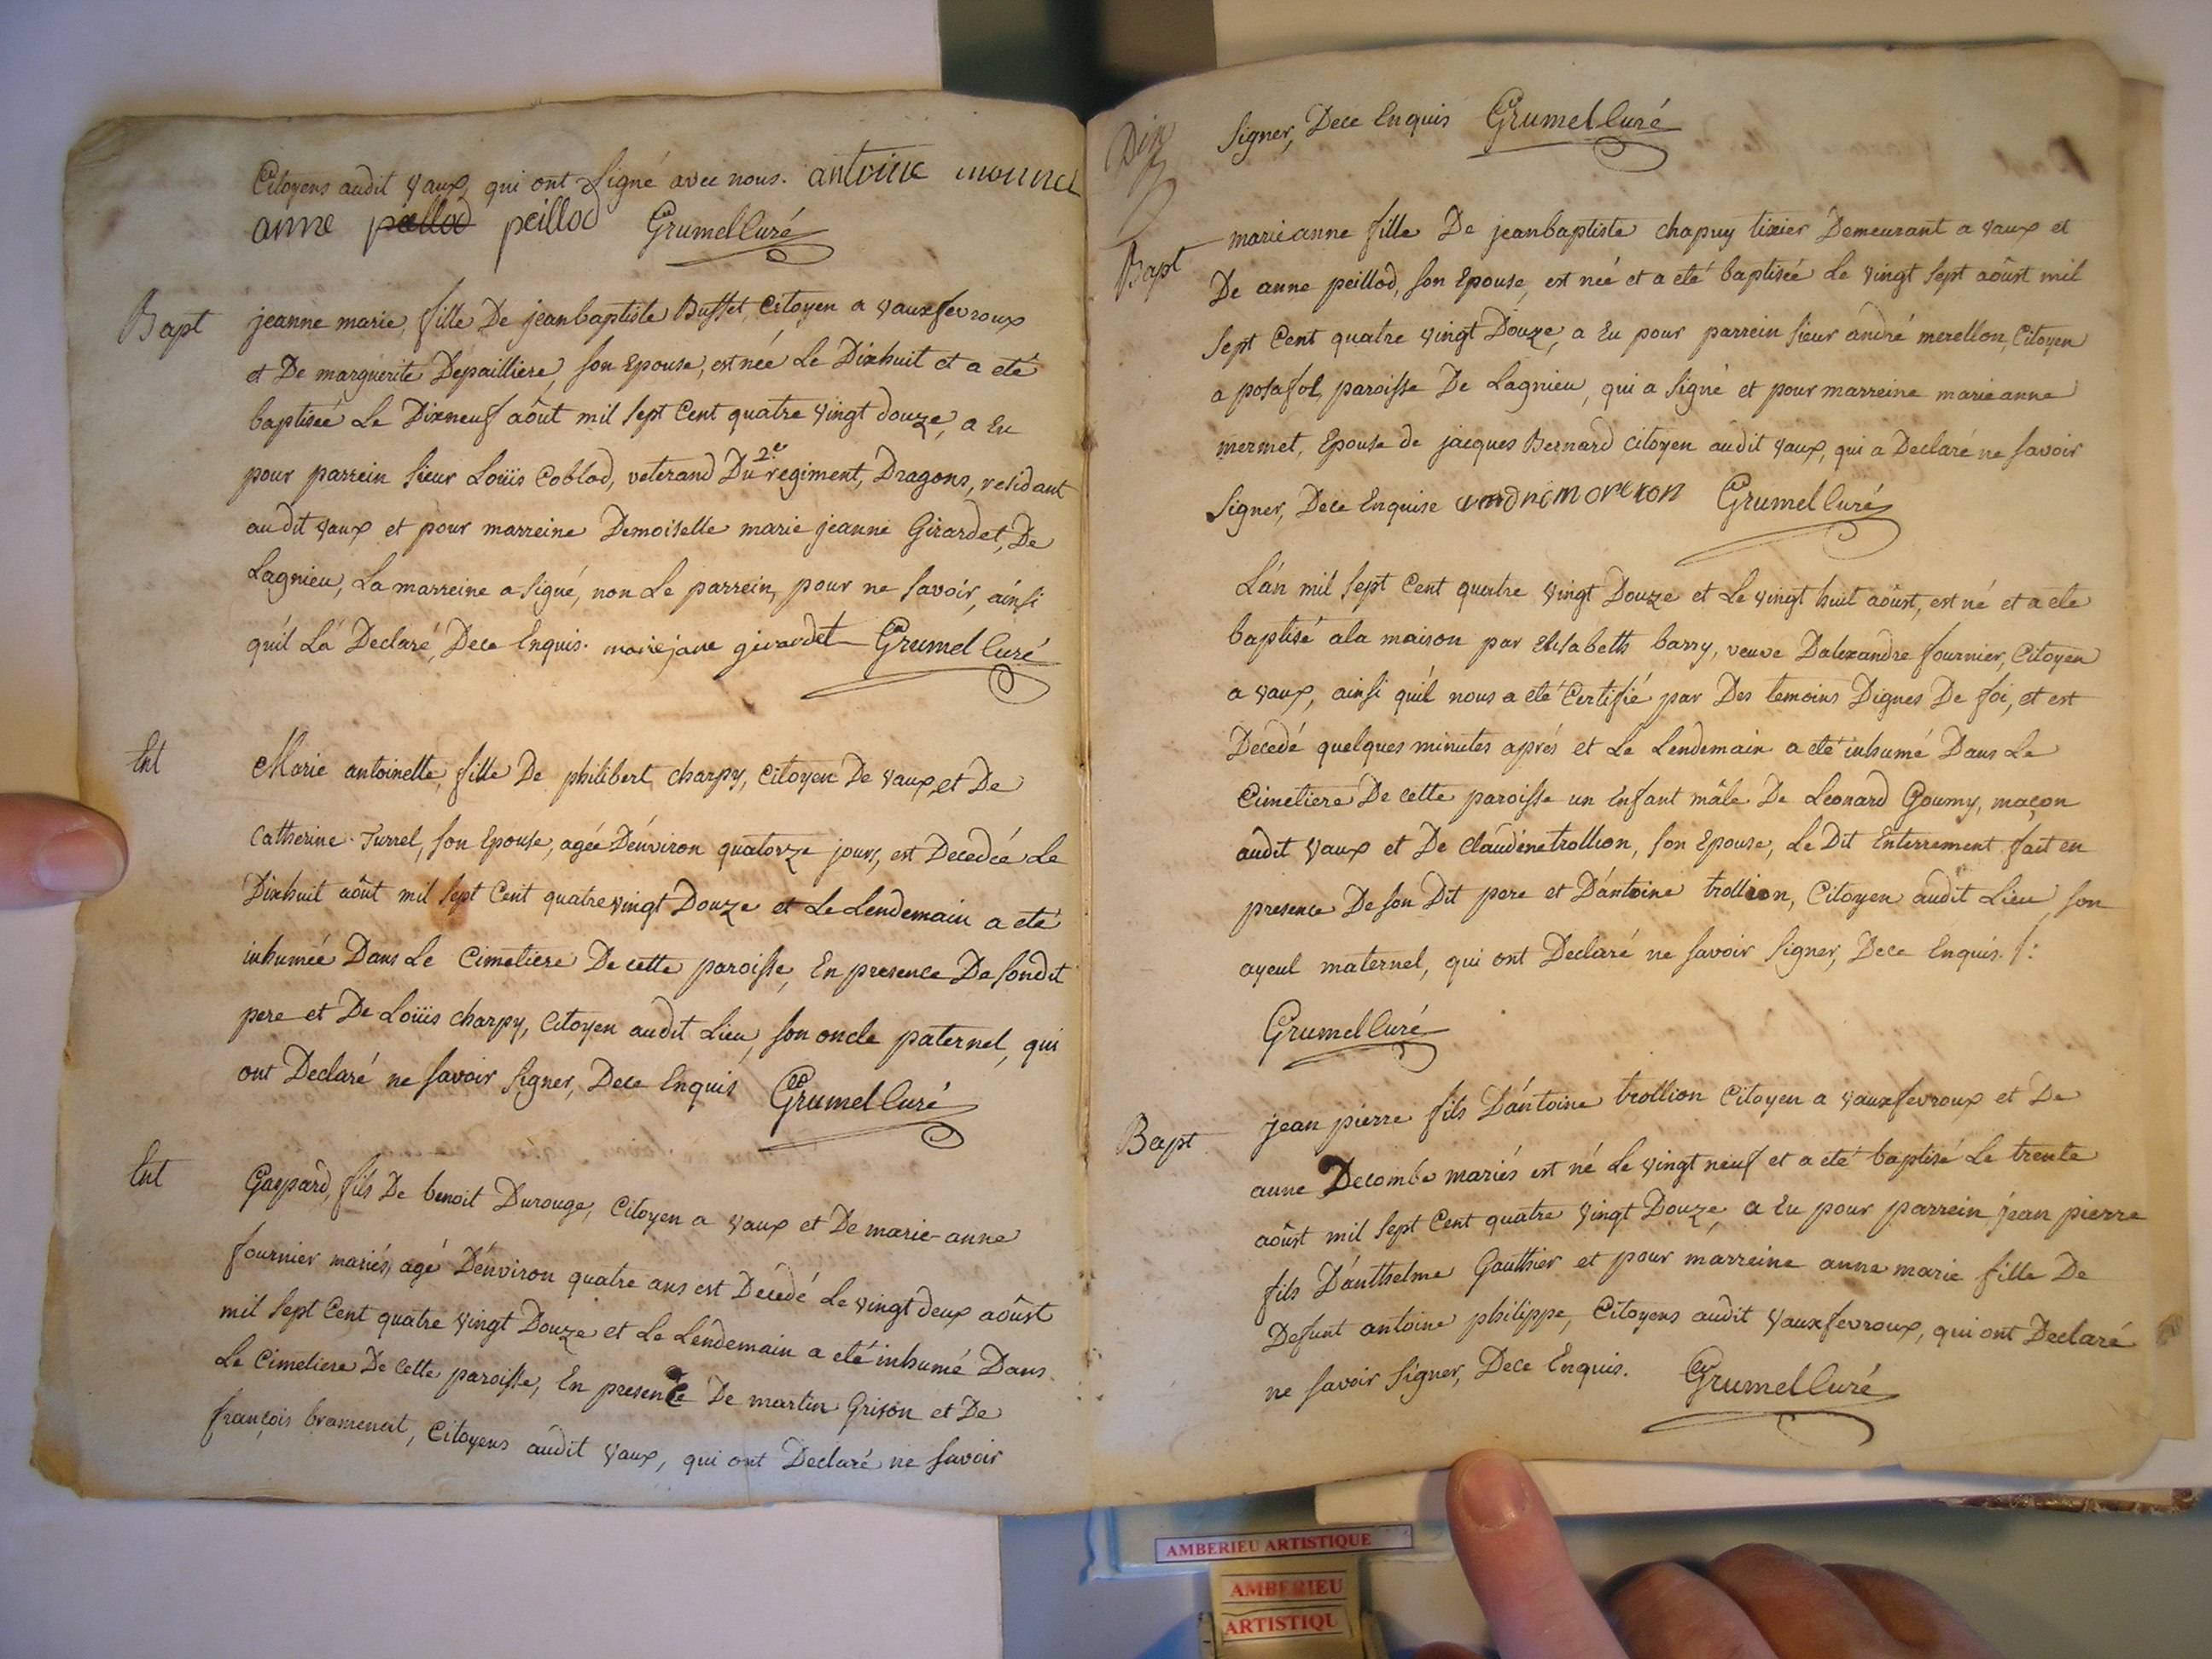 Citoyens audit Vaux, qui ont signé avec nous. antoine
anne peillod peillod Grumel Curé
Bapt
jeanne marie, fille De jeanbaptiste Buffet, Citoyen a Vauxfevroux
et De marguerite Depailliere, son Epouse, est née Le Dixhuit et a eté
baptisée Le Dixneuf aôut mil sept Cent quatre vingt douze, a Eu
pour parrein sieur Loüis Coblod, veterand Du 2e regiment, Dragons, residant
audit Vaux et pour marreine Demoiselle marie jeanne Girardet, De
Lagnieu, La marreine a signé, non Le parrein, pour ne savoir, ainsi
qu'il L'a Declaré, Dece Enquis. marie jane girardet Grumel Curé
Ent
Marie antoinette, fille De philibert charpy, Citoyen De Vaux, et De
Catherine Turrel, son Epouse, agée D'énviron quatorze jours, est Decedée Le
Dixhuit aôut mil sept Cent quatre vingt Douze et Le Lendemain a eté
inhumée Dans Le Cimetiere De cette paroisse, En presence De sondit
pere et De Loüis charpy, Citoyen audit Lieu, son oncle paternel, qui
ont Declaré ne savoir signer, Dece Enquis Grumel Curé
Ent
Gaspard, fils De benoit Durouge, Citoyen a Vaux et De marie-anne
fournier mariés, agé D'énviron quatre ans est Décédé Le vingt deux aôust
mil sept Cent quatre vingt Douze et Le Lendemain a eté inhumé Dans
Le Cimetiere De cette paroisse, En presence De martin Grison et De
françois bramerat, Citoyens audit Vaux, qui ont Declaré ne savoir
Dix
signer, Dece Enquis Grumel Curé
Bapt
marie anne fille De jeanbaptiste chapuy tixier Demeurant a Vaux et
De anne peillod, son Epouse, est née et a eté baptisée Le vingt sept aôust mil
sept Cent quatre vingt Douze, a Eu pour parrein sieur andré merellon, Citoyen
a posafol, paroisse De Lagnieu, qui a signé et pour marreine marie anne
mermet, Epouse de jacques Bernard Citoyen audit Vaux, qui a Declaré ne savoir
signer, Dece Enquise Grumel Curé
L'an mil sept Cent quatre vingt Douze et Le vingt huit aôust, est né et a ete
baptisé a la maison par Elisabeth barry, veuve D'alexandre fournier, Citoyen
a Vaux, ainsi qu'il nous a eté Certifié par Des temoins Dignes De foi, et est
Decedé quelques minutes aprés et Le Lendemain a eté inhumé Dans Le
Cimetiere De cette paroisse un Enfant mâle De Leonard Goumy, maçon
audit Vaux et De Claudine trollion, son Epouse, Le Dit Enterrement fait en
presence De son Dit pere et D'antoine trollion, Citoyen audit Lieu, son
ayeul maternel, qui ont Declaré ne savoir signer, Dece Enquis ./:
Grumel Curé
Bapt
jean pierre fils D'antoine trollion Citoyen a Vauxfevroux et De
anne Decombe mariés est né Le vingt neuf et a eté baptisé Le trente
aôust mil sept Cent quatre vingt Douze, a Eu pour parrein jean pierre
fils D'anthelme Gauthier et pour marreine anne marie fille De
Defunt antoine philippe, Citoyens audit Vauxfevroux, qui ont Declaré
ne savoir signer, Dece Enquis. Grumel Curé
AMBERIEU ARTISTIQUE
AMBERIEU
ARTISTIQU